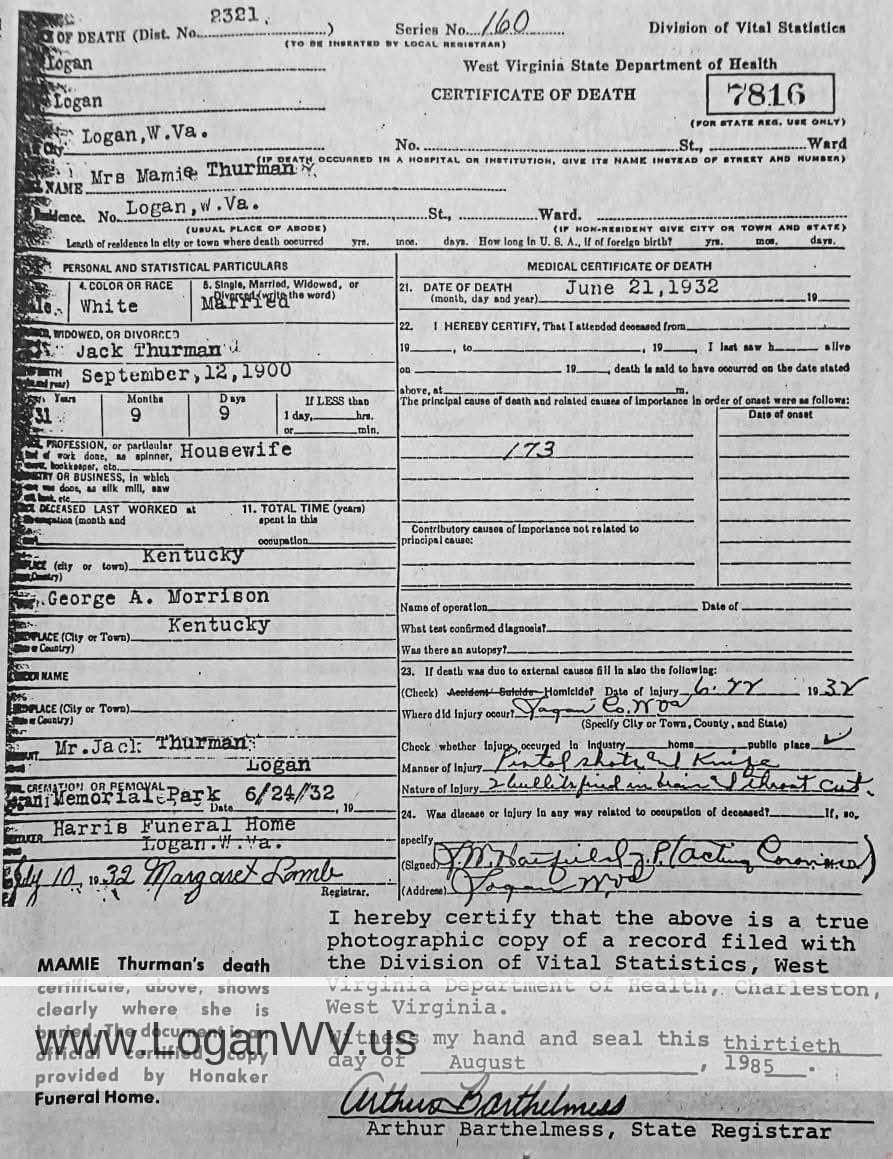 2321.
OF DEATH (Dist. No. ) Series No. 160 Division of Vital Statistics
(TO BE INSERTED BY LOCAL REGISTRAR)
Logan West Virginia State Department of Health
Logan CERTIFICATE OF DEATH 7816
(FOR STATE REG. USE ONLY)
City Logan,W.Va. No. St., Ward
(IF DEATH OCCURRED IN A HOSPITAL OR INSTITUTION, GIVE ITS NAME INSTEAD OF STREET AND NUMBER)
NAME Mrs Mamie Thurman
Residence. No. Logan,W.Va. St., Ward.
(USUAL PLACE OF ABODE) (IF NON-RESIDENT GIVE CITY OR TOWN AND STATE)
Length of residence in city or town where death occurred yrs. mos. days. How long in U. S. A., if of foreign birth? yrs. mos. days.
PERSONAL AND STATISTICAL PARTICULARS
4. COLOR OR RACE 5. Single, Married, Widowed, or
Divorced (write the word)
White Married
WIDOWED, OR DIVORCED
Jack Thurman
September,12,1900
Years Months Days If LESS than
31 9 9 1 day, hrs.
or min.
PROFESSION, or particular
of work done, as spinner, Housewife
bookkeeper, etc.
OR BUSINESS, in which
was done, as silk mill, saw
etc
DECEASED LAST WORKED at 11. TOTAL TIME (years)
(month and spent in this
occupation
Kentucky
(city or town)
Country)
George A. Morrison
Kentucky
(City or Town)
or Country)
NAME
(City or Town)
or Country)
Mr.Jack Thurman
Logan
CREMATION OR REMOVAL
Memorial Park Date 6/24/32 , 19
Harris Funeral Home
Logan.W.Va.
10, 1932 Margaret Lamb
Registrar.
MEDICAL CERTIFICATE OF DEATH
21. DATE OF DEATH June 21,1932
(month, day and year) 19
22. I HEREBY CERTIFY, That I attended deceased from
19 , to , 19 , I last saw h alive
on 19 , death is said to have occurred on the date stated
above, at m.
The principal cause of death and related causes of importance in order of onset were as follows:
Date of onset
173
Contributory causes of importance not related to
principal cause:
Name of operation Date of
What test confirmed diagnosis?
Was there an autopsy?
23. If death was due to external causes fill in also the following:
(Check) Accident Suicide Homicide? Date of Injury 6-22 1932
Where did injury occur? Logan Co. W Va
(Specify City or Town, County, and State)
Check whether injury occurred in Industry home public place ✓
Manner of Injury Pistol shots & Knife
Nature of Injury 2 bullits fired in brain & throat cut.
24. Was disease or injury in any way related to occupation of deceased? If, so,
specify
(Signed) Hatfield J.P. (Acting Coroner)
(Address) Logan W Va
I hereby certify that the above is a true
photographic copy of a record filed with
the Division of Vital Statistics, West
Virginia Department of Health, Charleston,
West Virginia.
Witness my hand and seal this thirtieth
day of August , 1985 .
Arthur Barthelmess
Arthur Barthelmess, State Registrar
MAMIE Thurman's death
certificate, above, shows
clearly where she is
buried. The document is an
official certified copy
provided by Honaker
Funeral Home.
www.LoganWV.us